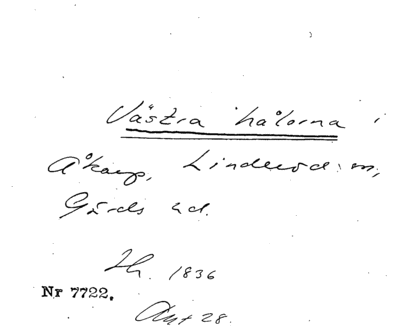 Västra hålorna i
Åkarp, Linderöd sn,
Gärds hd.
Lh. 1836
Nr 7722.
Akt 28.